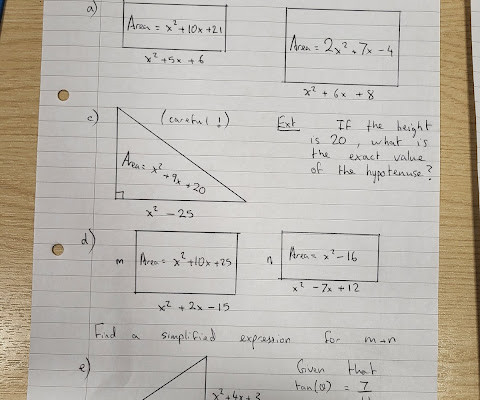 a)
Area = x² + 10x + 21
x² + 5x + 6
Area = 2x² + 7x - 4
x² + 6x + 8
c)
(careful!)
Area = x² + 9x + 20
x² - 25
Ext If the height
is 20, what is
the exact value
of the hypotenuse?
d)
m
Area = x² + 10x + 25
x² + 2x - 15
n
Area = x² - 16
x² - 7x + 12
Find a simplified expression for m+n
e)
Given that
tan(θ) = 7